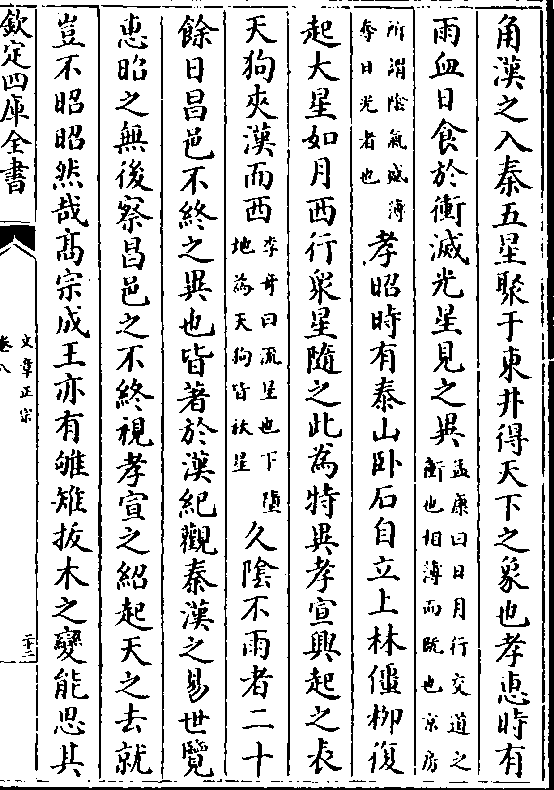 角漢之入秦五星聚于東井得天下之象也孝惠時有
雨血日食於衝滅光星見之異孟康曰日月行交道之衝也相薄而既也京房
所謂陰氣盛薄奪日光者也孝昭時有泰山卧石自立上林僵柳復
起大星如月西行衆星隨之此為特異孝宣興起之表
天狗夾漢而西李竒曰流星也下墮地為天狗皆祅星久陰不雨者二十
餘日昌邑不終之異也皆著於漢紀觀秦漢之易世覽
惠昭之無後察昌邑之不終視孝宣之紹起天之去就
豈不昭昭然哉髙宗成王亦有雊雉拔木之變能思其
欽定四庫全書
文章正宗
卷八
二十三